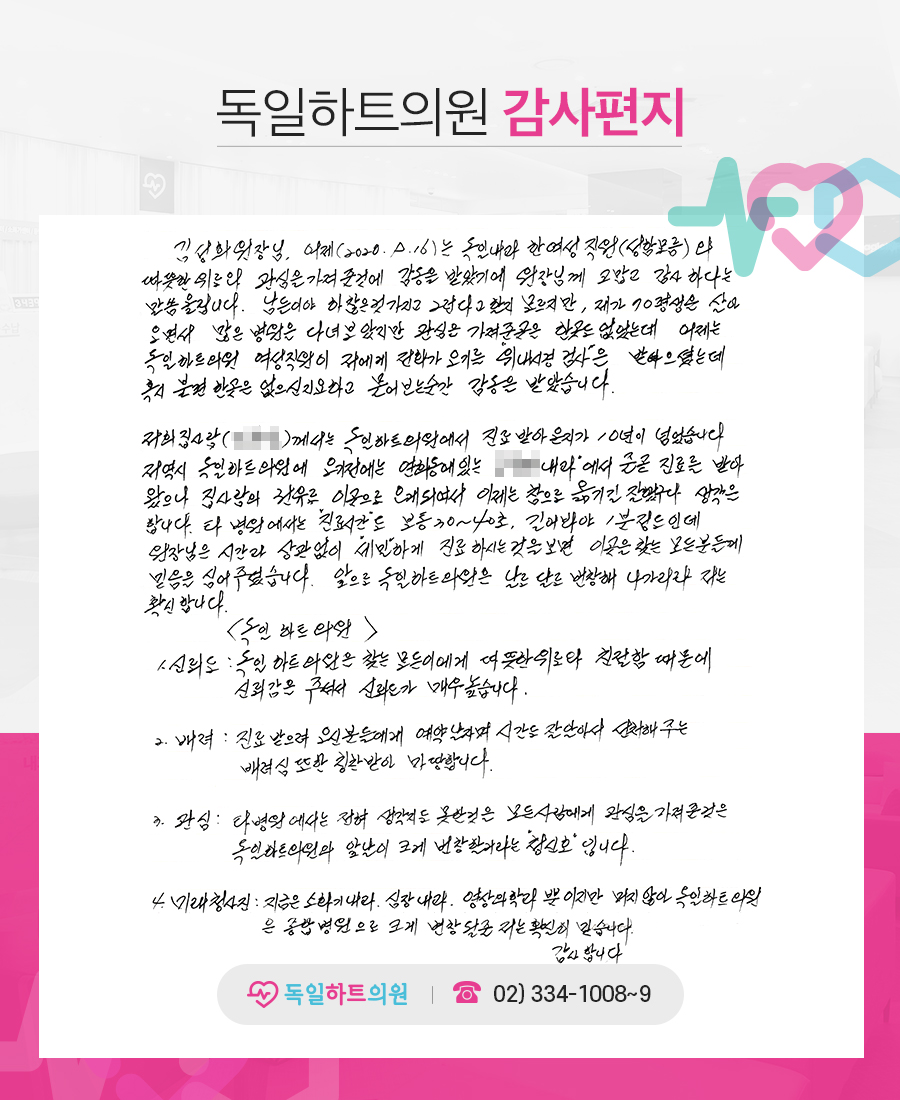 독일하트의원 감사편지
원장님, 어제(2020. . 16)는 독일내과 한 여성 직원(성함모름)의
따뜻한 위로와 관심을 가져준것에 감동을 받았기에 원장님께 고맙고 감사하다는
말씀 올립니다. 남들이야 하찮은것 가지고 그런다고 할지 모르지만, 제가 70평생을 살아
오면서 많은 병원을 다녀보았지만 관심을 가져준곳은 한곳도 없었는데 어제는
독일하트의원 여성직원이 저에게 전화가 오기를 "위내시경 검사"를 받아으셨는데
혹시 불편한곳은 없으신지요하고 물어보는순간 감동을 받았습니다.
저희집사람( )께서는 독일하트의원에서 진료 받아온지가 10년이 넘었습니다
저역시 독일하트의원에 오기전에는 연희동에있는 내과"에서 줄곧 진료를 받아
왔으나 집사람의 권유로 이곳으로 오게되여서 이제는 참으로 옮기길 잘했구나 생각을
합니다. 타 병원에서는 "진료시간"도 보통 30~40초, 길어봐야 1분정도인데
원장님은 시간과 상관없이 "세밀"하게 진료하시는것을보면 이곳을 찾는 모든분들에게
믿음을 심어주었습니다. 앞으로 독일하트의원은 날로 달로 번창해 나가리라 저는
확신합니다.
<독일 하트의원>
1. 신뢰도 : 독일 하트의원을 찾는 모든이에게 따뜻한위로와 친절함 때문에
신뢰감을 주셔서 신뢰도가 매우높습니다.
2. 배려 : 진료 받으려 오신분들에게 예약날자며 시간도 잘알아서 선처해 주는
배려심 또한 칭찬받아 마땅합니다.
3. 관심 : 타병원에서는 전혀 생각지도 못한것을 모든사람에게 관심을 가져준것은
독일하트의원의 앞날이 크게 번창한거라는 "청신호"입니다.
4. 미래청사진 : 지금은 소화기내과. 심장내과. 영상의학과 뿐이지만 머지않아 독일하트의원
은 종합병원으로 크게 번창할줄 저는 확신히 믿습니다.
감사합니다
독일하트의원 02) 334-1008~9